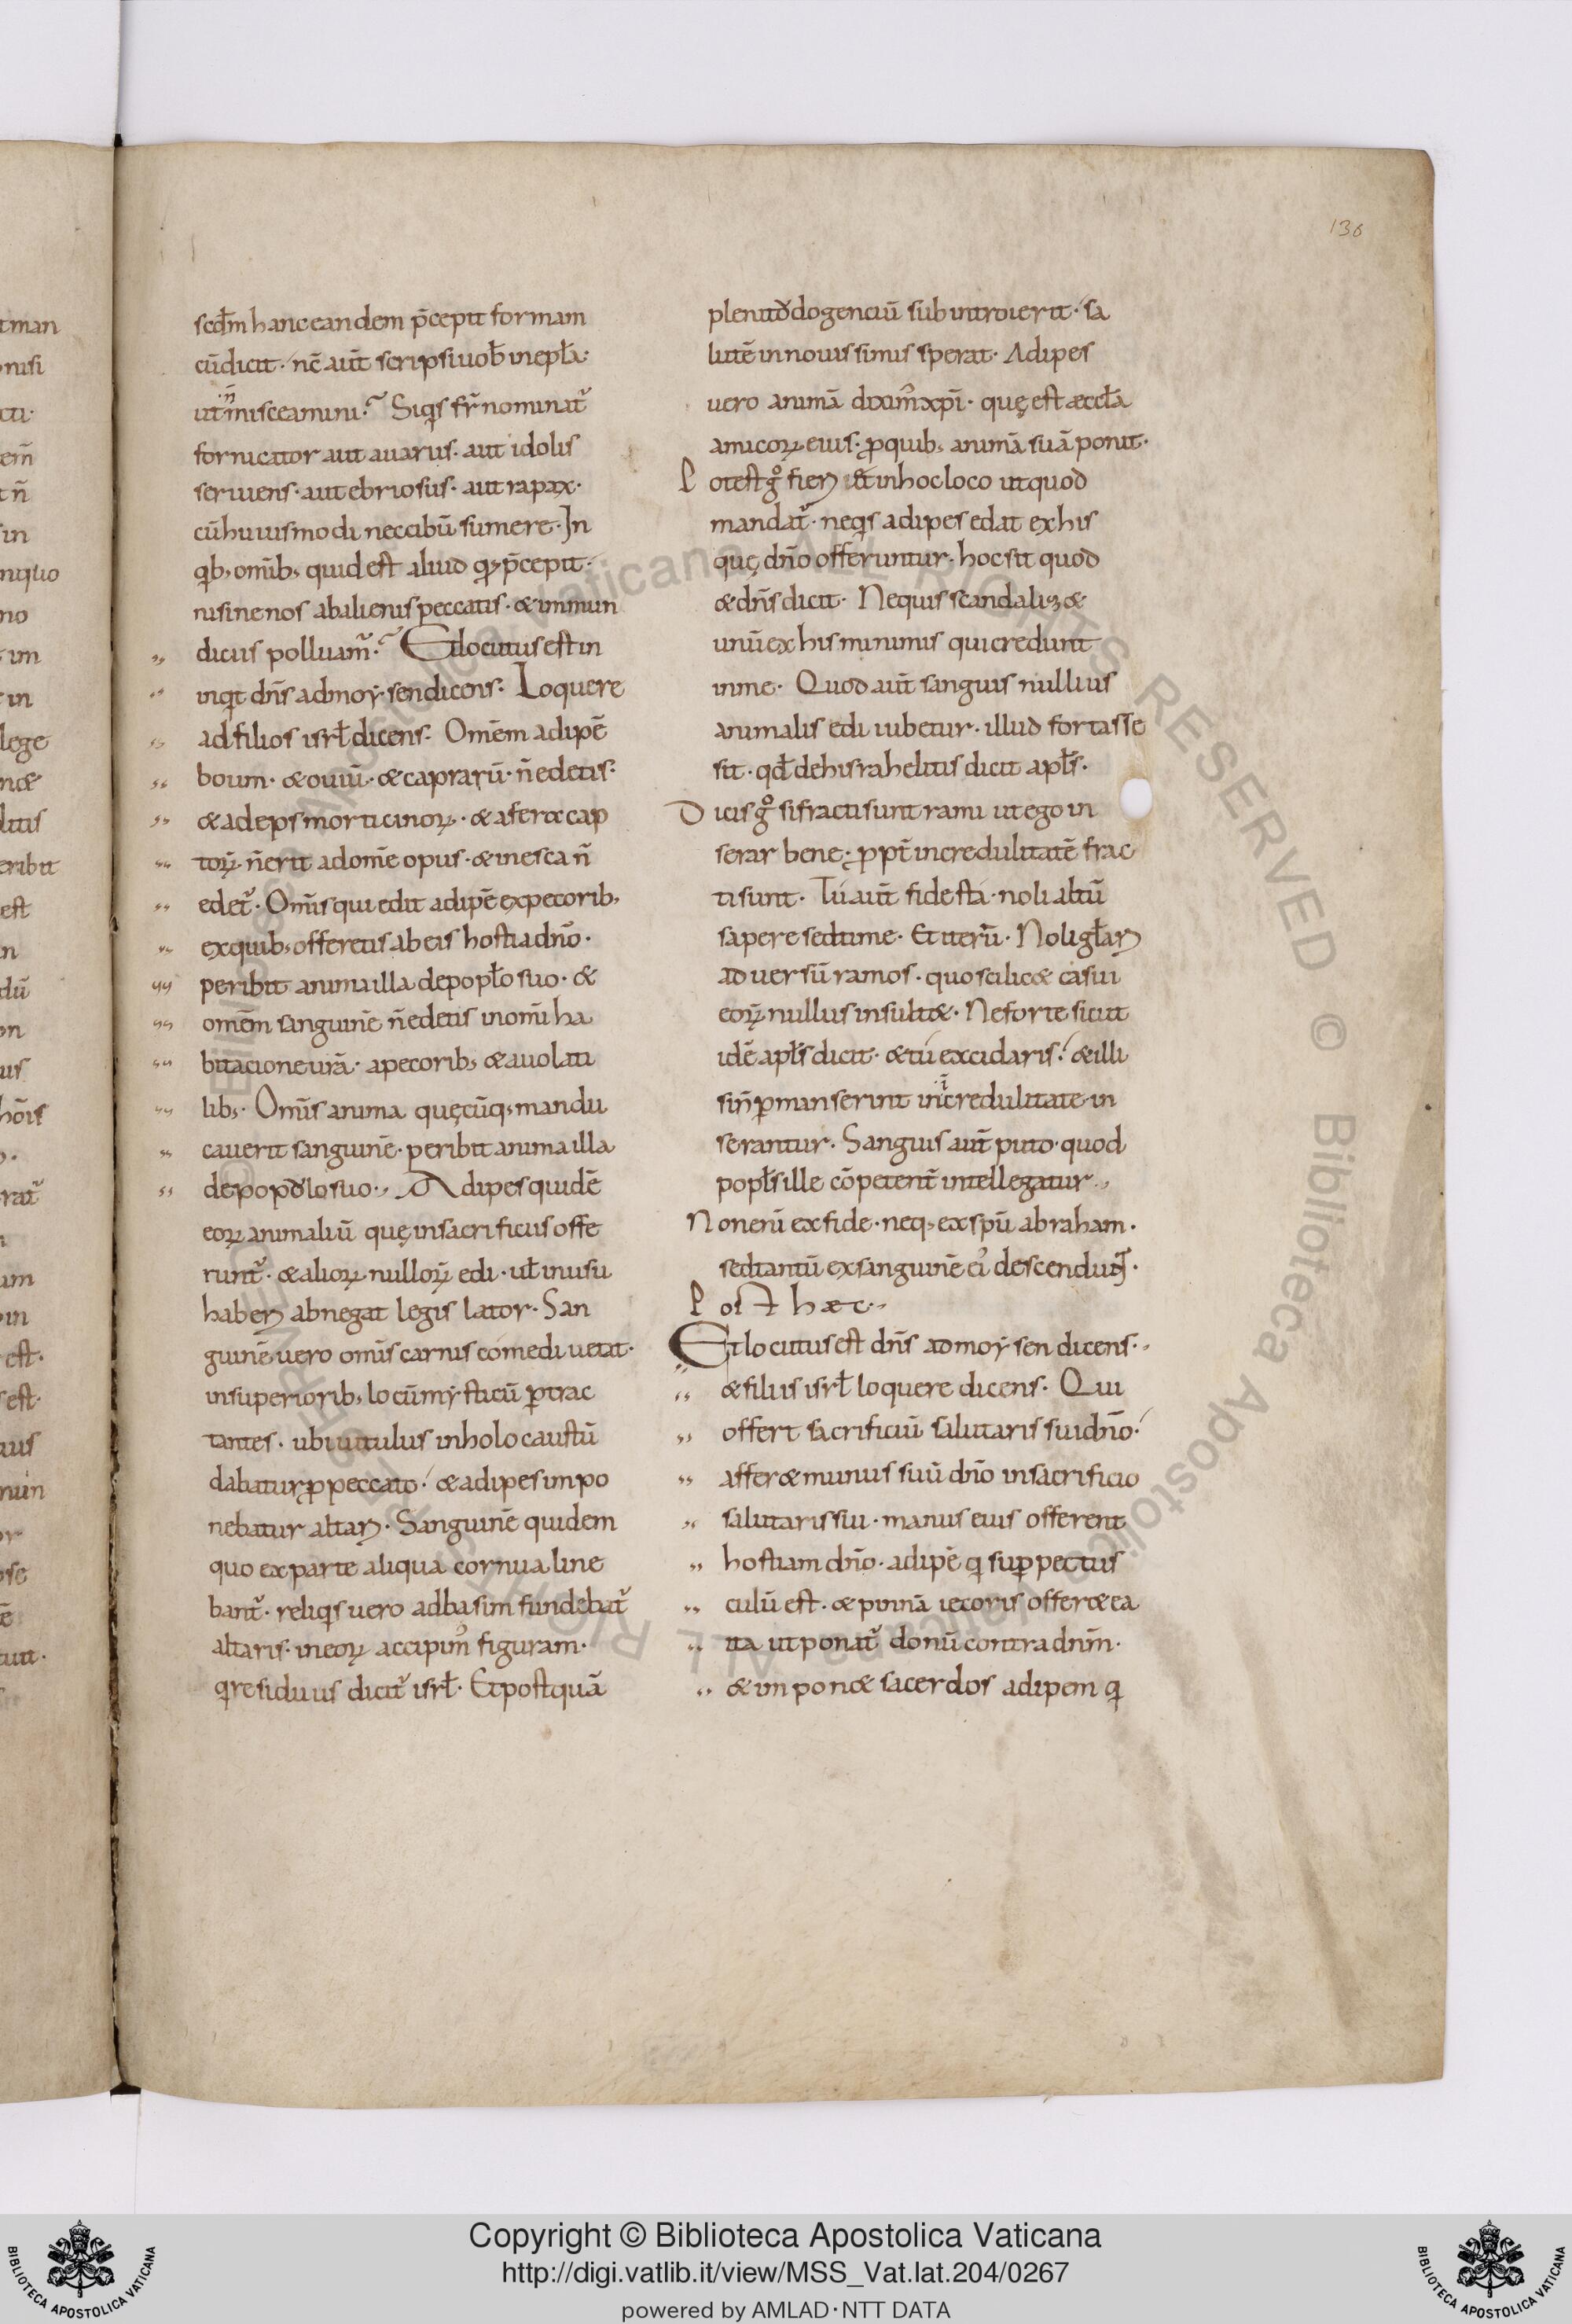 136
scdm hanc eandem p̄cepit formam
cū dicit· nc̄ aut̄ scripsi uob̄ in epła·
ut n̄ misceamini· Siq̇s fr̄ nominat᷒
fornicator aut auarus· aut idolis
seruiens· aut ebriosus· aut rapax·
cū huiusmodi nec cibū sumere· In
qib; om̄ib; quid est aliud qđ p̄cepit·
nisi ne nos ab alienis peccatis· & inmun
diciis polluam᷒· Et locutus est in
inqit dn̄s ad moẏsen dicens· Loquere
ad filios isrł dicens· Omēm adipē
boum· & ouiū· & caprarū· n̄ edetis·
& adeps morticinoꝝ· & a fera cap
toꝝ n̄ erit ad om̄e opus· & in esca n̄
edet᷒· Om̄is qui edit adipē ex pecorib;
ex quib; offeretis ab eis hostia dn̄o·
peribit anima illa de popło suo· &
omēm sanguinē n̄ edetis in om̄i ha
bitacione ur̄a· a pecorib; & a uolati
lib;· Om̄is anima quęcūq; mandu
cauerit sanguinē· peribit anima illa
de populo suo· Adipes quidē
eoꝝ animaliū quę in sacrificiis offe
runt᷒· & alioꝝ nulloꝝ edi· uł in usu
haberi abnegat legis lator· San
guinē uero om̄is carnis comedi uetat·
in superiorib; locū mẏsticū ꝑtrac
tantes· ubi uitulus in holocaustū
dabatur ꝓ peccato· & adipes impo
nebatur altari· Sanguinē quidem
quo ex parte aliqua cornua line
bant᷒· reliqis uero ad basim fundebat᷒
altaris· in eoꝝ accipim᷒ figuram·
qi residuus dicit᷒ isrł· Et postquā
plenitudo genciū subintroierit· sa
lutē in nouissimis sperat· Adipes
uero animā diximus xp̄i· quę est æccła
amicoꝝ eius· ꝓ quib; animā suā ponit·
Potest gͦ fieri & in hoc loco ut quod
mandat᷒· neqis adipes edat ex his
quę dn̄o offeruntur· hoc sit quod
& dn̄s dicit· Nequis scandaliz&
unū ex his minimis qui credunt
in me· Quod aut̄ sanguis nullius
animalis edi iubetur· illud fortasse
sit· qđ de his rahelitis dicit apłs·
Dicis gͦ si fracti sunt rami ut ego in
serar bene· ꝓpt̄ incredulitatē frac
ti sunt· Tu aut̄ fide sta· noli altū
sapere sed time· Et iterū· Noli głari
aduersū ramos· quo scilic& casui
eoꝝ nullus insult&· Ne forte sicut
idē apłs dicit· & tu excidaris· & illi
si n̄ ꝑmanserint in incredulitate in
serantur· Sanguis aut̄ puto· quod
popłs ille cōpetent̄ intellegatur·
Non enī ex fide· neq; ex spū abraham·
sed tantū ex sanguinē ei᷒ descendunt·
Post hæc·
Et locutus est dn̄s ad moẏsen dicens·
& filiis isrł loquere dicens· Qui
offert sacrificiū salutaris sui dn̄o·
affer& munus suū dn̄o in sacrificio
salutaris sui· manus eius offerent
hostiam dn̄o· adipē qi sup pectus
culū est· & pinnā iecoris offer& ea
ita ut ponat᷒ donū contra dnm̄·
& impon& sacerdos adipem qi
Copyright © Biblioteca Apostolica Vaticana
http://digi.vatlib.it/view/MSS_Vat.lat.204/0267
powered by AMLAD·NTT DATA
BIBLIOTECA APOSTOLICA VATICANA
BIBLIOTECA APOSTOLICA VATICANA